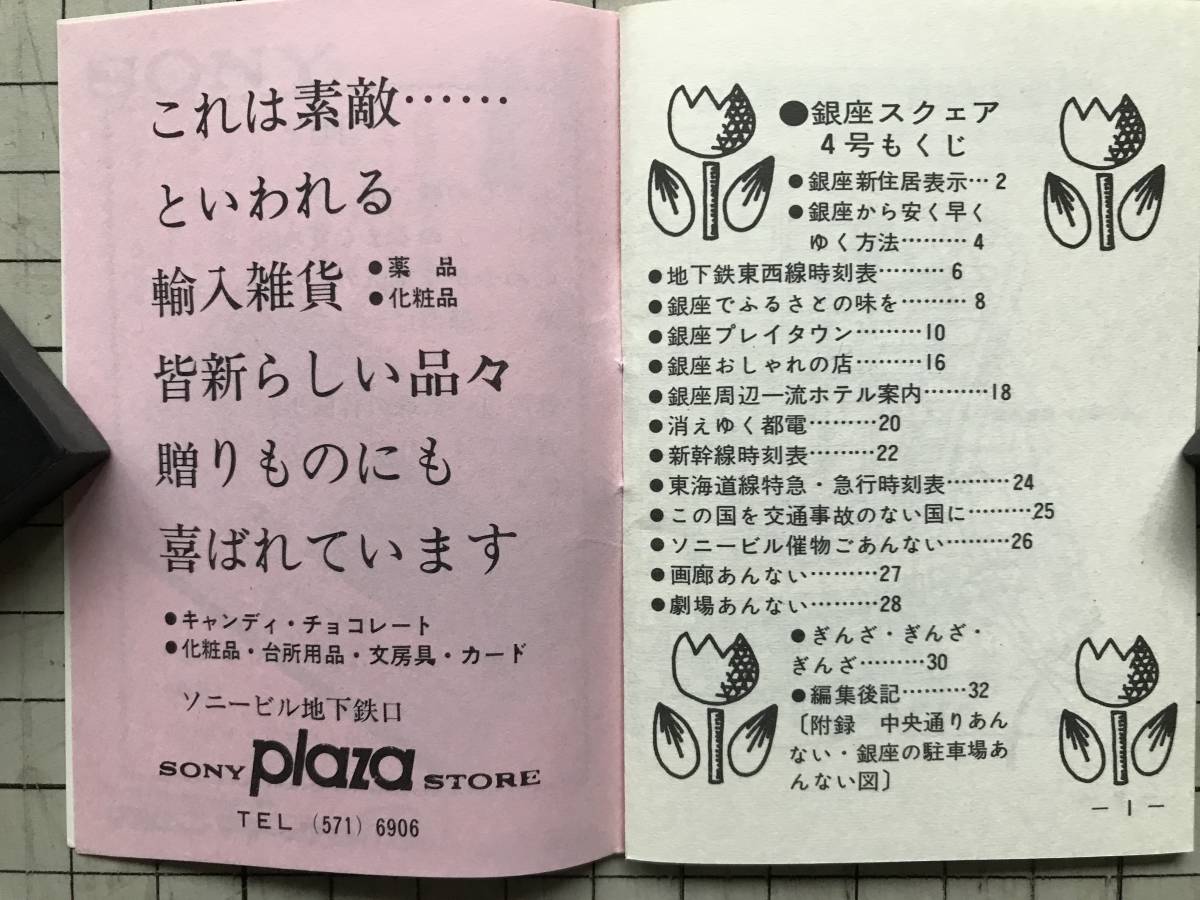 これは素敵……
といわれる
輸入雑貨 ●薬　品
●化粧品
皆新らしい品々
贈りものにも
喜ばれています
●キャンディ・チョコレート
●化粧品・台所用品・文房具・カード
ソニービル地下鉄口
SONY plaza STORE
TEL (571) 6906
●銀座スクェア
4号もくじ
●銀座新住居表示…2
●銀座から安く早く
ゆく方法………4
●地下鉄東西線時刻表………6
●銀座でふるさとの味を………8
●銀座プレイタウン………10
●銀座おしゃれの店………16
●銀座周辺一流ホテル案内………18
●消えゆく都電………20
●新幹線時刻表………22
●東海道線特急・急行時刻表………24
●この国を交通事故のない国に………25
●ソニービル催物ごあんない………26
●画廊あんない………27
●劇場あんない………28
●ぎんざ・ぎんざ・
ぎんざ………30
●編集後記………32
〔附録　中央通りあん
ない・銀座の駐車場あ
んない図〕
－1－